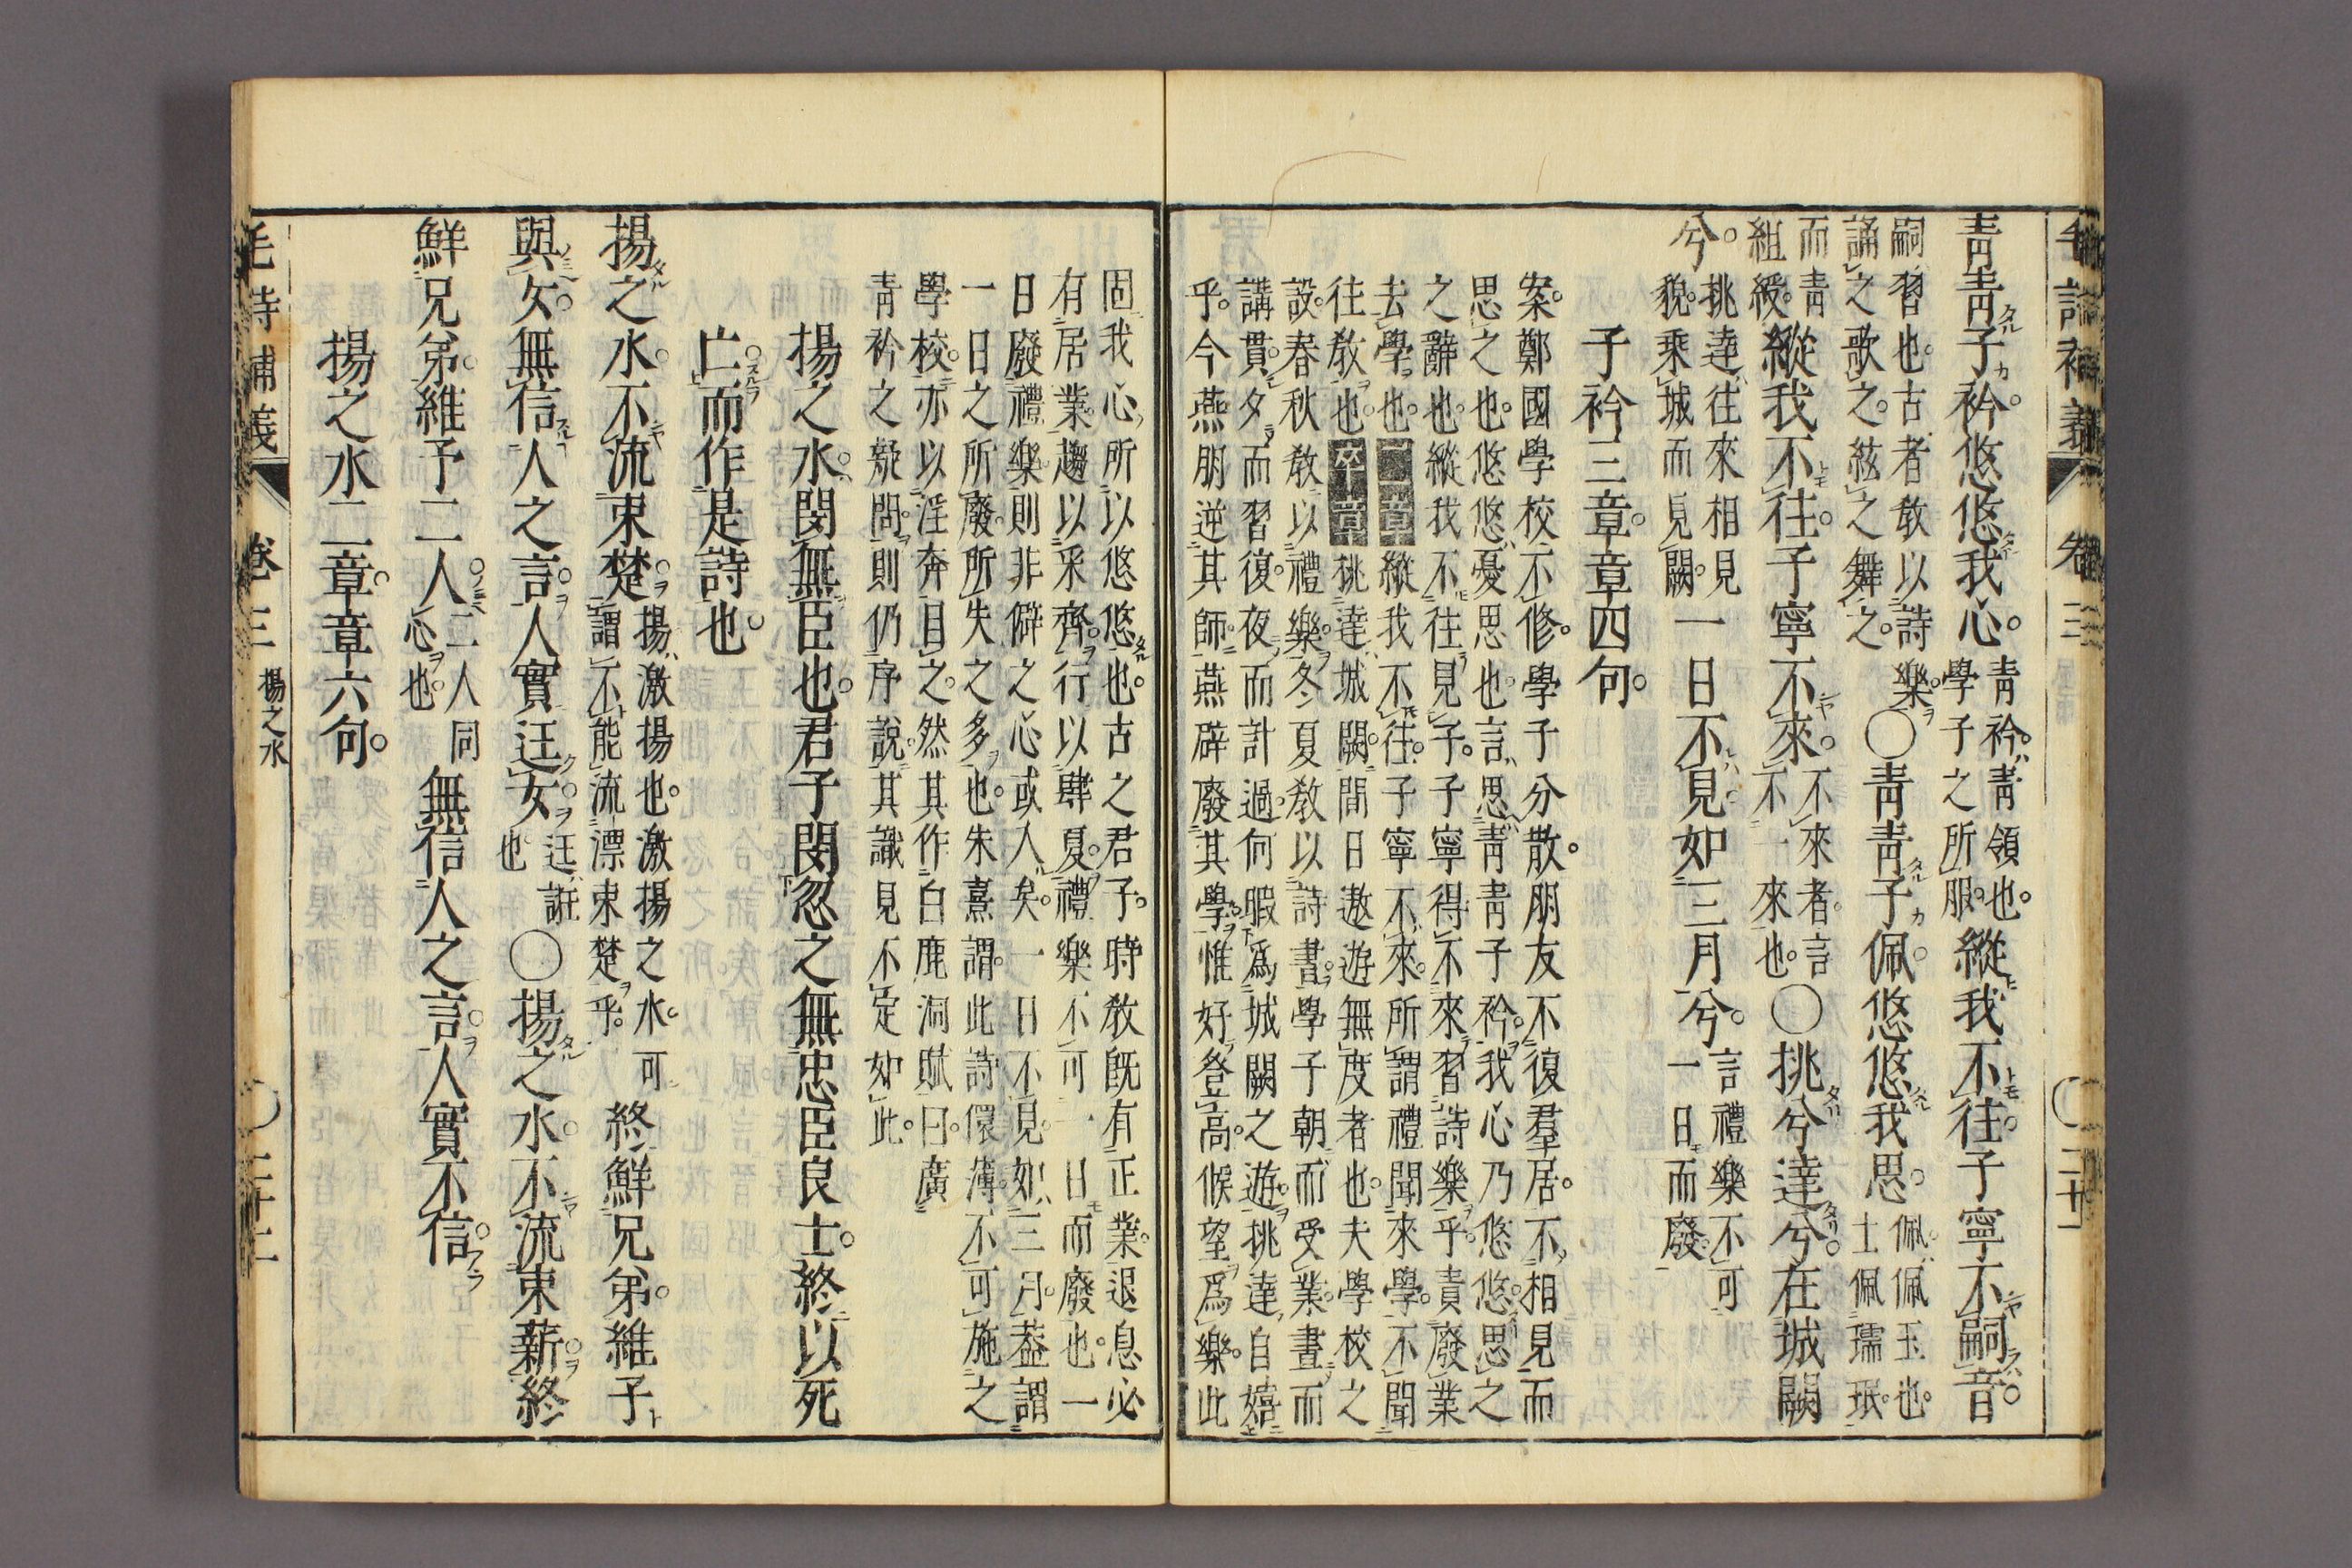 毛詩補義 卷三 三十一
青青子衿。悠悠我心。青衿。青領也。學子之所服。縱我不往。子寧不嗣音。
嗣。習也。古者敎以詩樂。誦之歌之。絃之舞之。○青青子佩。悠悠我思。佩。佩玉也。士佩瓀珉。
而青組綬。縱我不往。子寧不來。不來者。言不一來也。○挑兮達兮。在城闕
兮。挑達。往來相見貌。乘城而見闕。一日不見。如三月兮。言禮樂不可一日而廢。
子衿三章。章四句。
案。鄭國學校不修。學子分散。朋友不復羣居。不相見而
思之也。悠悠。憂思也。言。思青青子衿。我心乃悠悠。思之
之辭也。縱我不往見子。子寧得不來習詩樂乎。責廢業
去學也。二章縱我不往。子寧不來。所謂禮聞來學。不聞
往敎也。卒章挑達城闕。間日遨遊無度者也。夫學校之
設。春秋敎以禮樂。冬夏敎以詩書。學子朝而受業。晝而
講貫。夕而習復。夜而計過。何暇爲城闕之遊。挑達自嬉
乎。今燕朋逆其師。燕辟廢其學。惟好登高。候望爲樂。此
固我心所以悠悠也。古之君子。時敎旣有正業。退息必
有居業。趨以采齊。行以肆夏。禮樂不可一日而廢也。一
日廢禮樂。則非僻之心或入矣。一日不見。如三月。蓋謂
一日之所廢。所失之多也。朱熹謂。此詩儇薄。不可施之
學校。亦以淫奔目之。然其作白鹿洞賦曰。廣
青衿之疑問。則仍序說。其識見不定如此。
揚之水。閔無臣也。君子閔忽之無忠臣良士。終以死
亡。而作是詩也。
揚之水。不流束楚。揚。激揚也。激揚之水。可謂不能流漂束楚乎。終鮮兄弟。維予
與女。無信人之言。人實迋女。迋。誑也○揚之水。不流束薪。終
鮮兄弟。維予二人。二人同心也。無信人之言。人實不信。
揚之水二章。章六句。
毛詩補義 卷三 揚之水 三十二